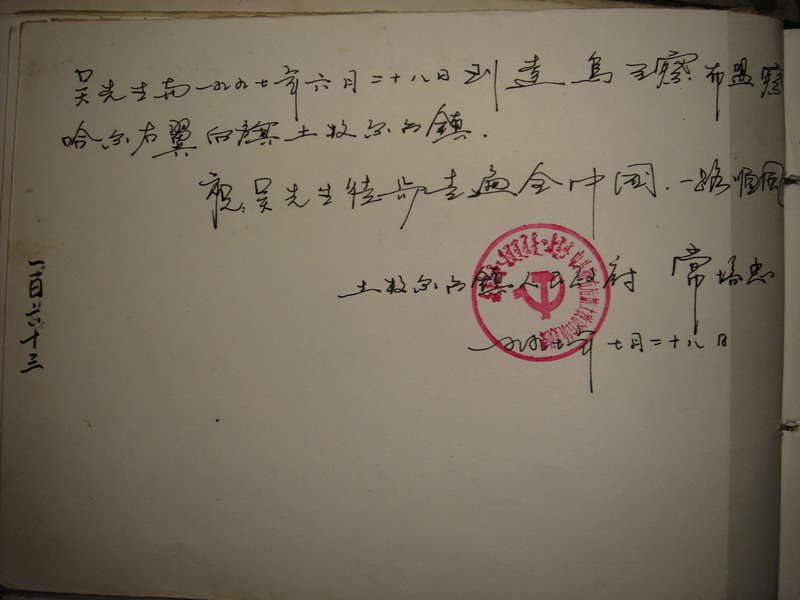 吴先生南一九九七年六月二十八日到达乌兰察布盟察
哈尔右翼后旗土牧尔台镇.
祝吴先生徒步走遍全中国.一路顺风
土牧尔台镇人民政府 常培忠
一九九七年七月二十八日
一百六十三